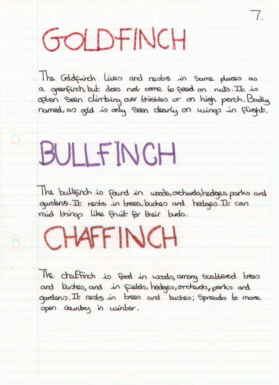 7.
GOLDFINCH
The Goldfinch lives and nests in same places as
a greenfinch but does not come to feed on nuts. It is
often seen climbing over thistles or on high perch. Badly
named, as gold is only seen clearly on wings in flight.
BULLFINCH
The bullfinch is found in woods, orchards, hedges, parks and
gardens. It nests in trees, bushes and hedges. It can
raid things like fruit for their buds.
CHAFFINCH
The chaffinch is found in woods, among scattered trees
and bushes, and in fields, hedges, orchards, parks and
gardens. It nests in trees and bushes; Spreads to more
open country in winter.